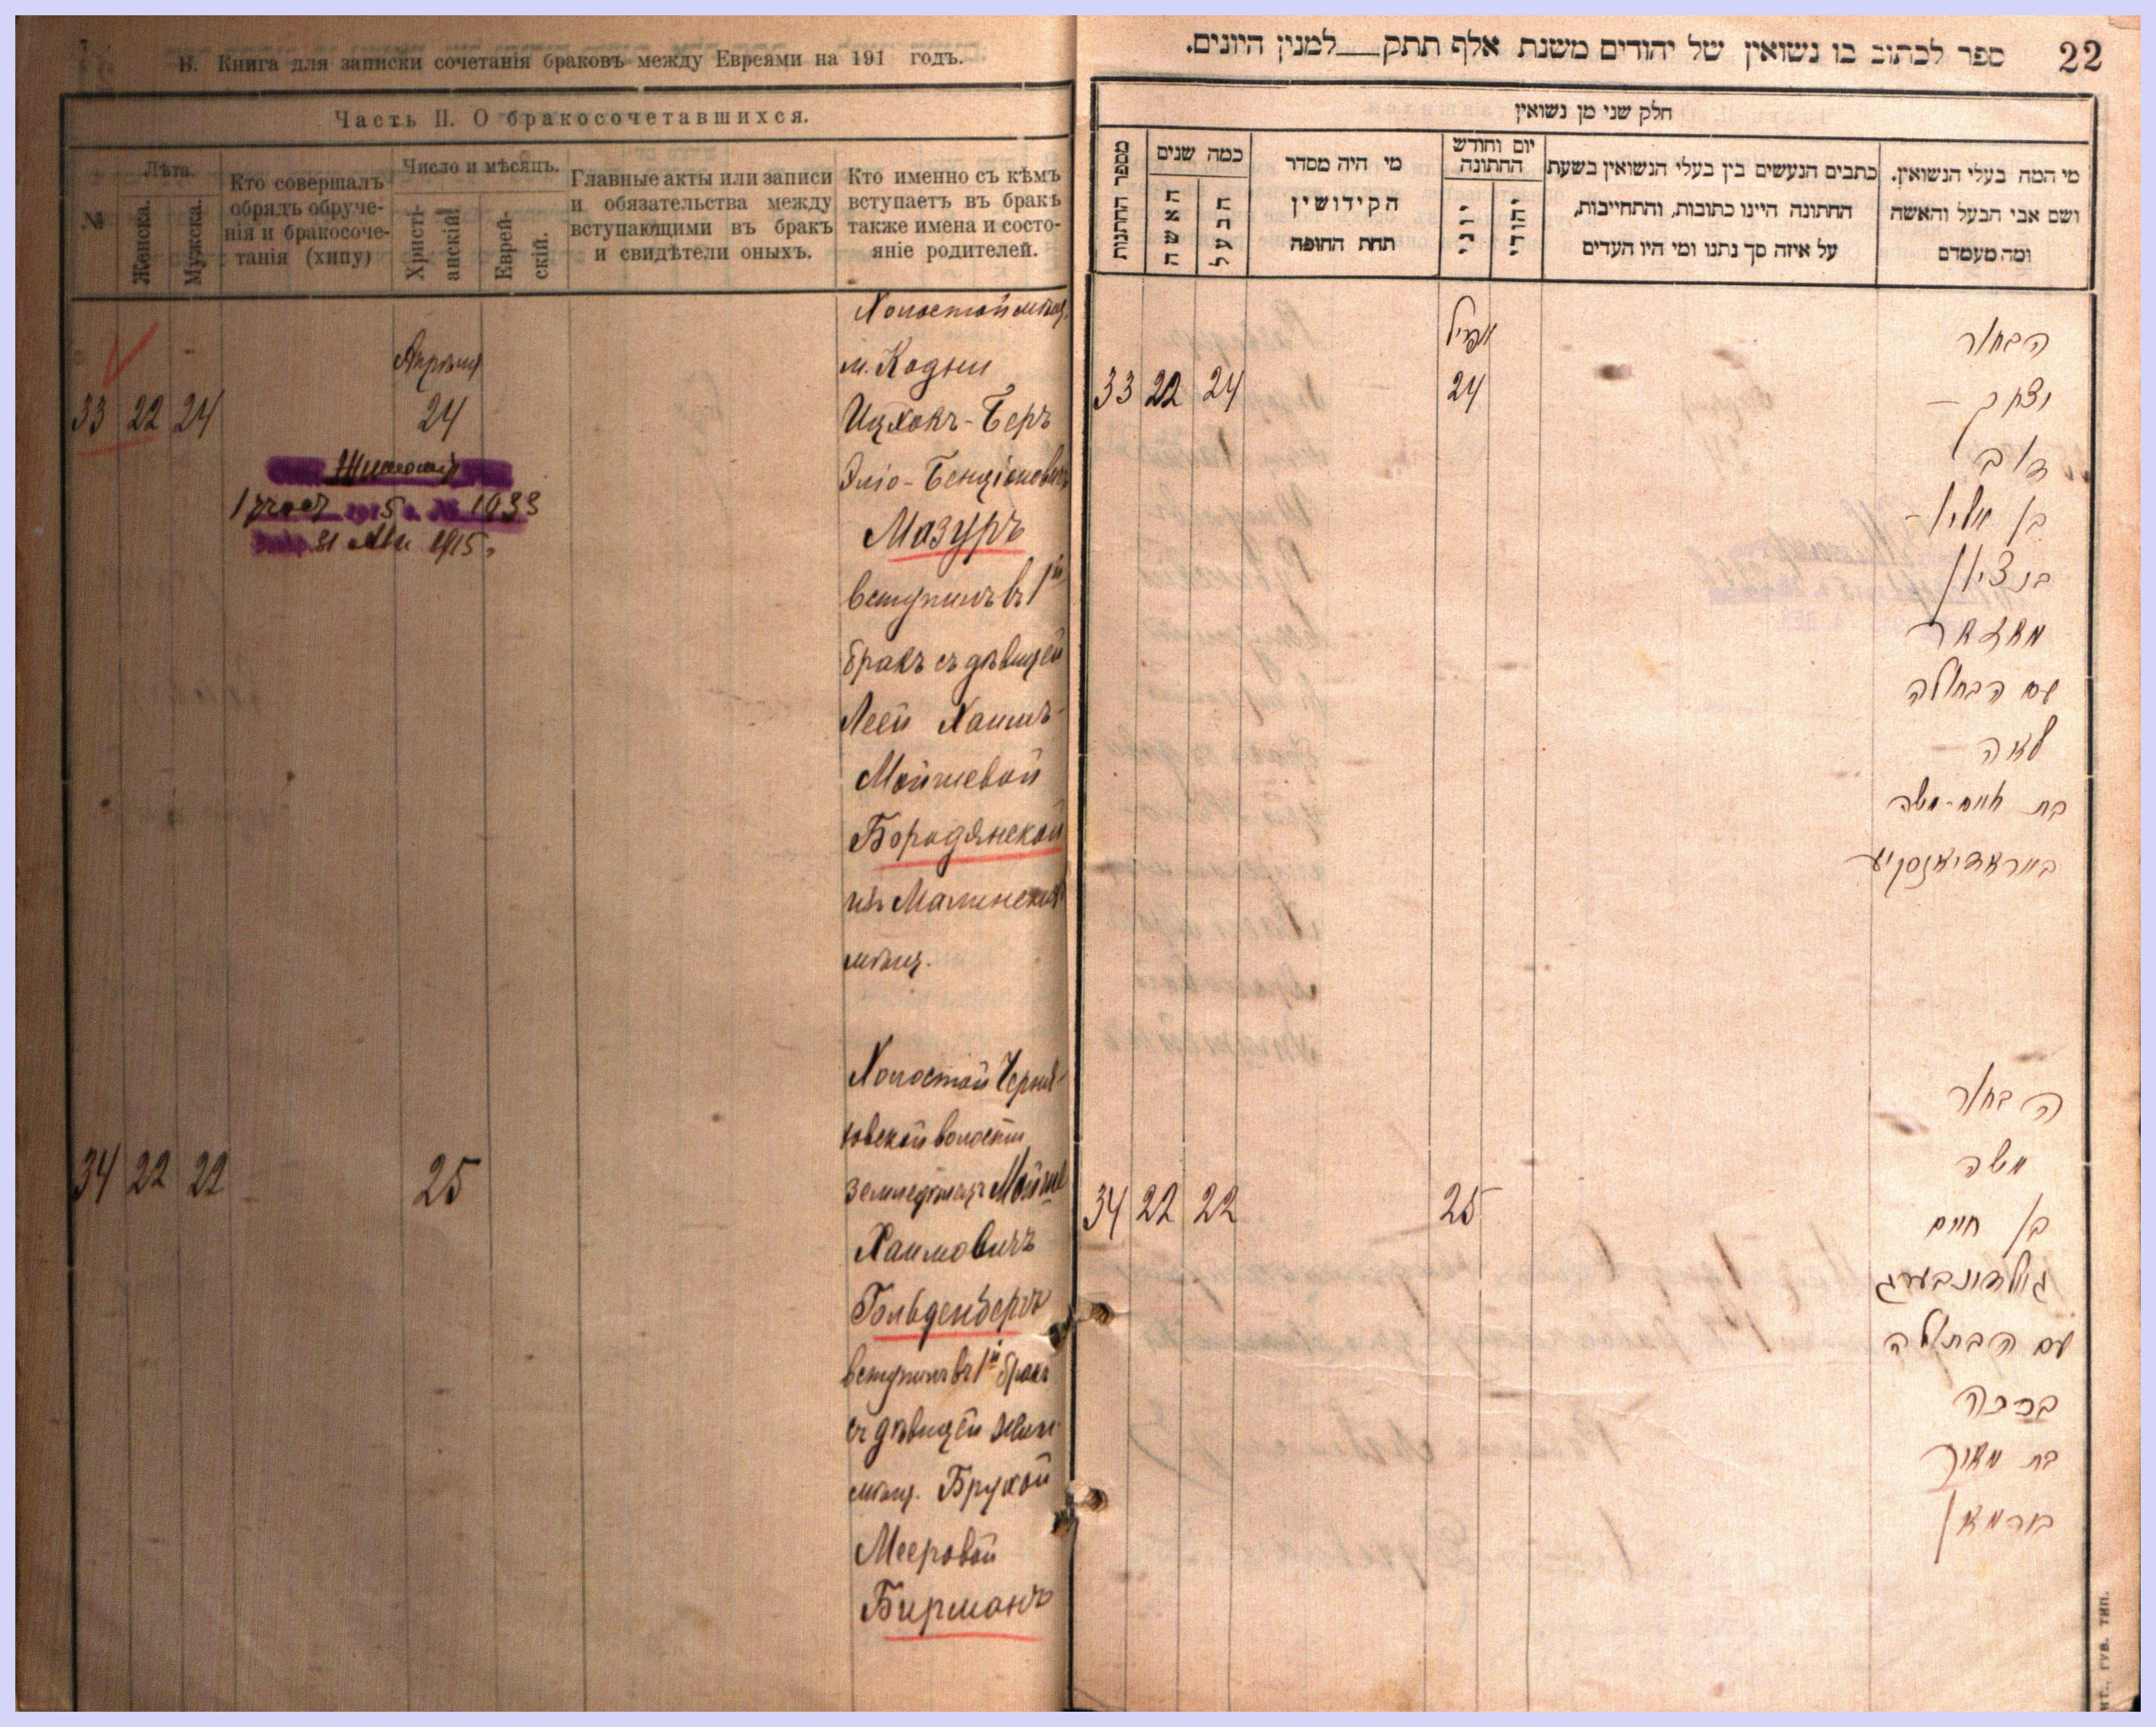 В. Книга для записки сочетанія браковъ между Евреями на 191 годъ.
Часть II. О бракосочетавшихся.
№
Лѣта.
Женска.
Мужска.
Кто совершалъ
обрядъ обруче-
нія и бракосоче-
танія (хипу)
Число и мѣсяцъ.
Христі-
анскій.
Еврей-
скій.
Главные акты или записи
и обязательства между
вступающими въ бракъ
и свидѣтели оныхъ.
Кто именно съ кѣмъ
вступаетъ въ бракъ
также имена и состо-
яніе родителей.
33 22 24
Апрѣля
24
1915 г. № 1933
31 1915 г.
Холостой мѣщ.
м. Кодни
Ицхокъ-Беръ
Эліо-Бенціоновичъ
Мазуръ
вступилъ въ 1й
бракъ съ дѣвицей
Леей Хаимъ-
Мойшевой
Бородянской
изъ Малинскихъ
мѣщ.
34 22 22
25
Холостой Черня-
ховской волости
земледѣлецъ Мойше
Хаимовичъ
Гольденбергъ
вступилъ въ 1й бракъ
съ дѣвицей
мѣщ. Брухой
Мееровой
Бирманъ
22
ספר לכתוב בו נשואין של יהודים משנת אלף תתק למנין היונים.
חלק שני מן נשואין
מספר החתנות
כמה שנים
האשה
הבעל
מי היה מסדר
הקידושין
תחת החופה
יום וחודש
החתונה
יוני
יהודי
כתבים הנעשים בין בעלי הנשואין בשעת
החתונה היינו כתובות, והתחייבות,
על איזה סך נתנו ומי היו העדים
מי המה בעלי הנשואין.
ושם אבי הבעל והאשה
ומה מעמדם
33 22 24
אפריל
24
הבחור
יצחק -
דוב
בן אליו-
בנציון
מאזאר
עם הבתולה
לאה
בת חיים-משה
באראדיאנסקיע
34 22 22
25
הבחור
משה
בן חיים
גאלדענבערג
עם הבתולה
ברכה
בת מאיר
בירמאן
гув. тип.